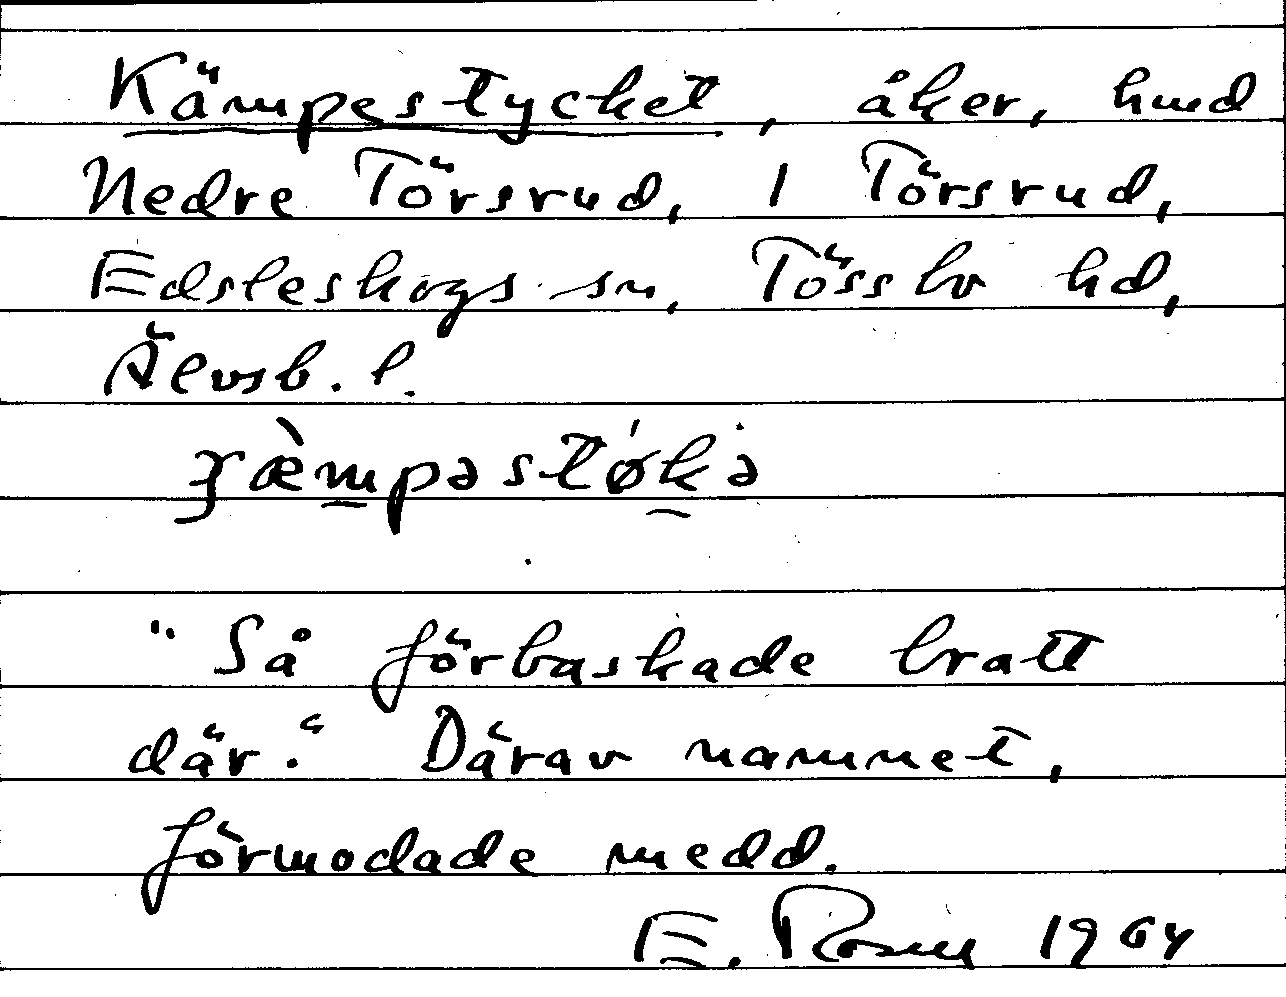 Kämpestycket, åker, hmd
Nedre Törsrud, 1 Törsrud,
Edsleskogs sn, Tössbo hd,
Älvsb. l.
"Så förbaskade bratt
där." Därav namnet,
förmodade medd.
E. Rosell 1964